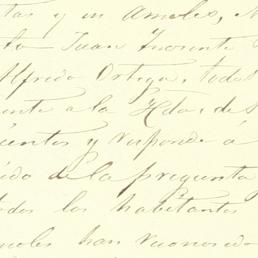 tas y un Anules, 
to Juan Inocente
Alfredo Ortega, todos
ente a la Hda. de S
cientos y responde á
ido de la pregunta
todos los habitantes
cuales han reconocido